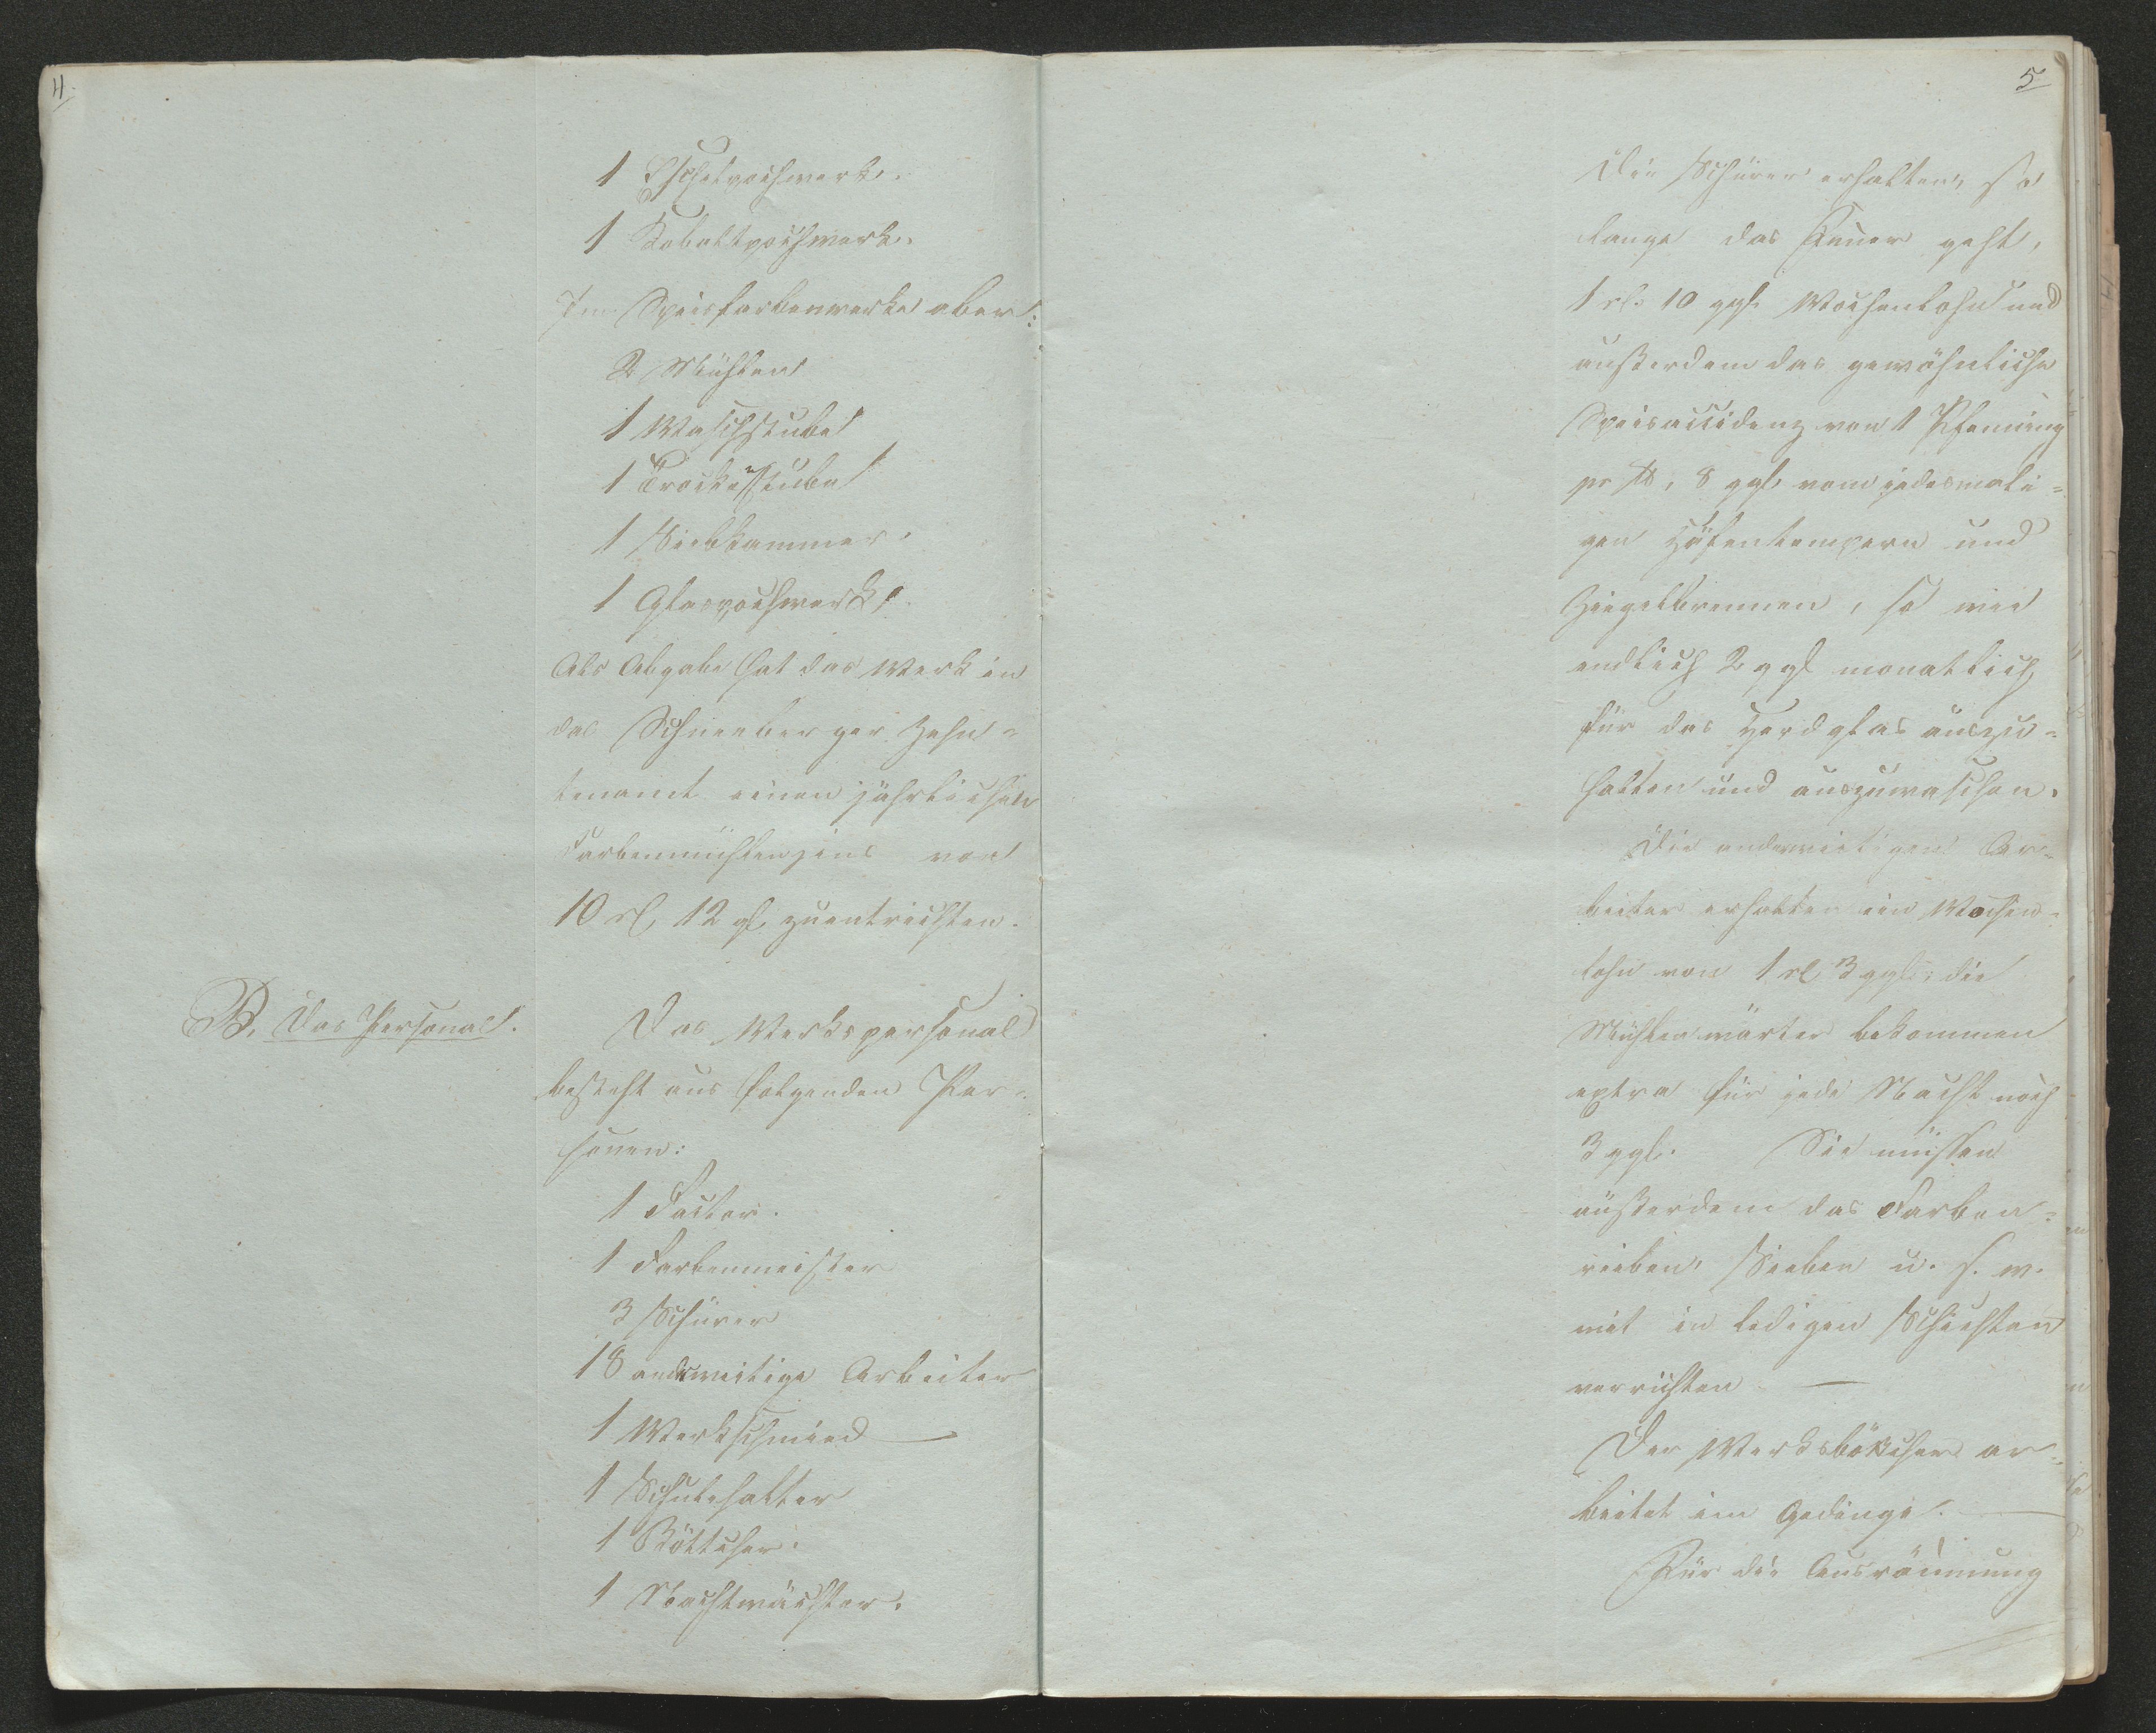 4.
1 Eschelpochwerk.
1 Koboltpochwerk.
Im Speisfarbenwerke aber:
2 Mühlen
1 Waschstube
1 Trockenstube
1 Siebkammer.
1 Glaspochwerk.
Als Abgabe hat das Werk in
das Schneeberger Zehn=
tenamt einen jährlichen
Farbenmühlenzins von
10 rl, 12 gl, zuentrichten.
B, Das Personal.
Das Werkspersonal
besteht aus folgenden Per=
sonen:
1 Factor.
1 Farbenmeister
3 Schürer
18 anderweitige Arbeiter
1 Werkschmied —
1 Schulehalter
1 Böttcher.
1 Nachtwächter.
5
Die Schürer erhalten, so
lange das Feuer geht,
1 rl. 10 ggl. Wochenlohn und
außerdem das gewöhnliche
Speisaccidenz von 1 Pfenning
pr ℔, 8 ggl. vom jedesmali=
gen Höfentempern und
Ziegelbrennen, so wie
endlich 2 ggl monatlich
für das Herdglas auszu=
halten und auszuwaschen.
Die anderweitigen Ar=
beiter erhalten ein Wochen=
lohn von 1 rl 3 ggl; die
Mühlenwärter bekommen
extra für jede Nacht noch
3 ggl. Sie müssen
außerdem das Farben=
reiben, Sieben u. s. w.
mit in ledigen Schichten
verrichten —
Der Werksböttcher ar=
beitet im Gedinge. —
Für die Ausräumung